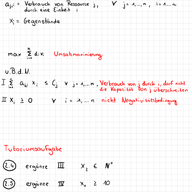 aij = Verbrauch von Ressource j, ∀ j = 1...m, ∀ i = 1...n
durch eine Einheit i
xi = Gegenstände
max Σ dix Umsatzmaximierung
u.B.d.N.
I Σ aij xi ≤ Cj ∀ j = 1...m, Verbrauch von j durch i, darf nicht
die Kapazität von j überschreiten
II xi ≥ 0 ∀ i = 1...n nicht Negativitätsbedingung
Tutoriumsaufgabe
2.4 ergänze III xi ∈ N⁺
2.5 ergänze IV x4 ≥ 10